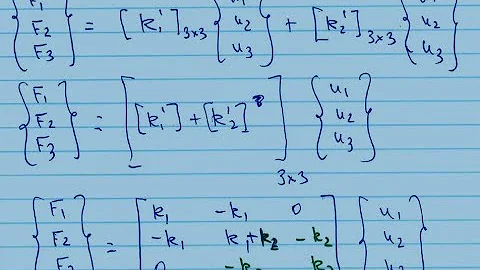 {F₁ F₂ F₃} = [k₁']₃ₓ₃ {u₁ u₂ u₃} + [k₂']₃ₓ₃ {u₁ u₂ u₃}
{F₁ F₂ F₃} = [[k₁'] + [k₂']]₃ₓ₃ {u₁ u₂ u₃}
{F₁ F₂ F₃} = [k₁ -k₁ 0
-k₁ k₁+k₂ -k₂
0 -k₂ k₂] {u₁ u₂ u₃}